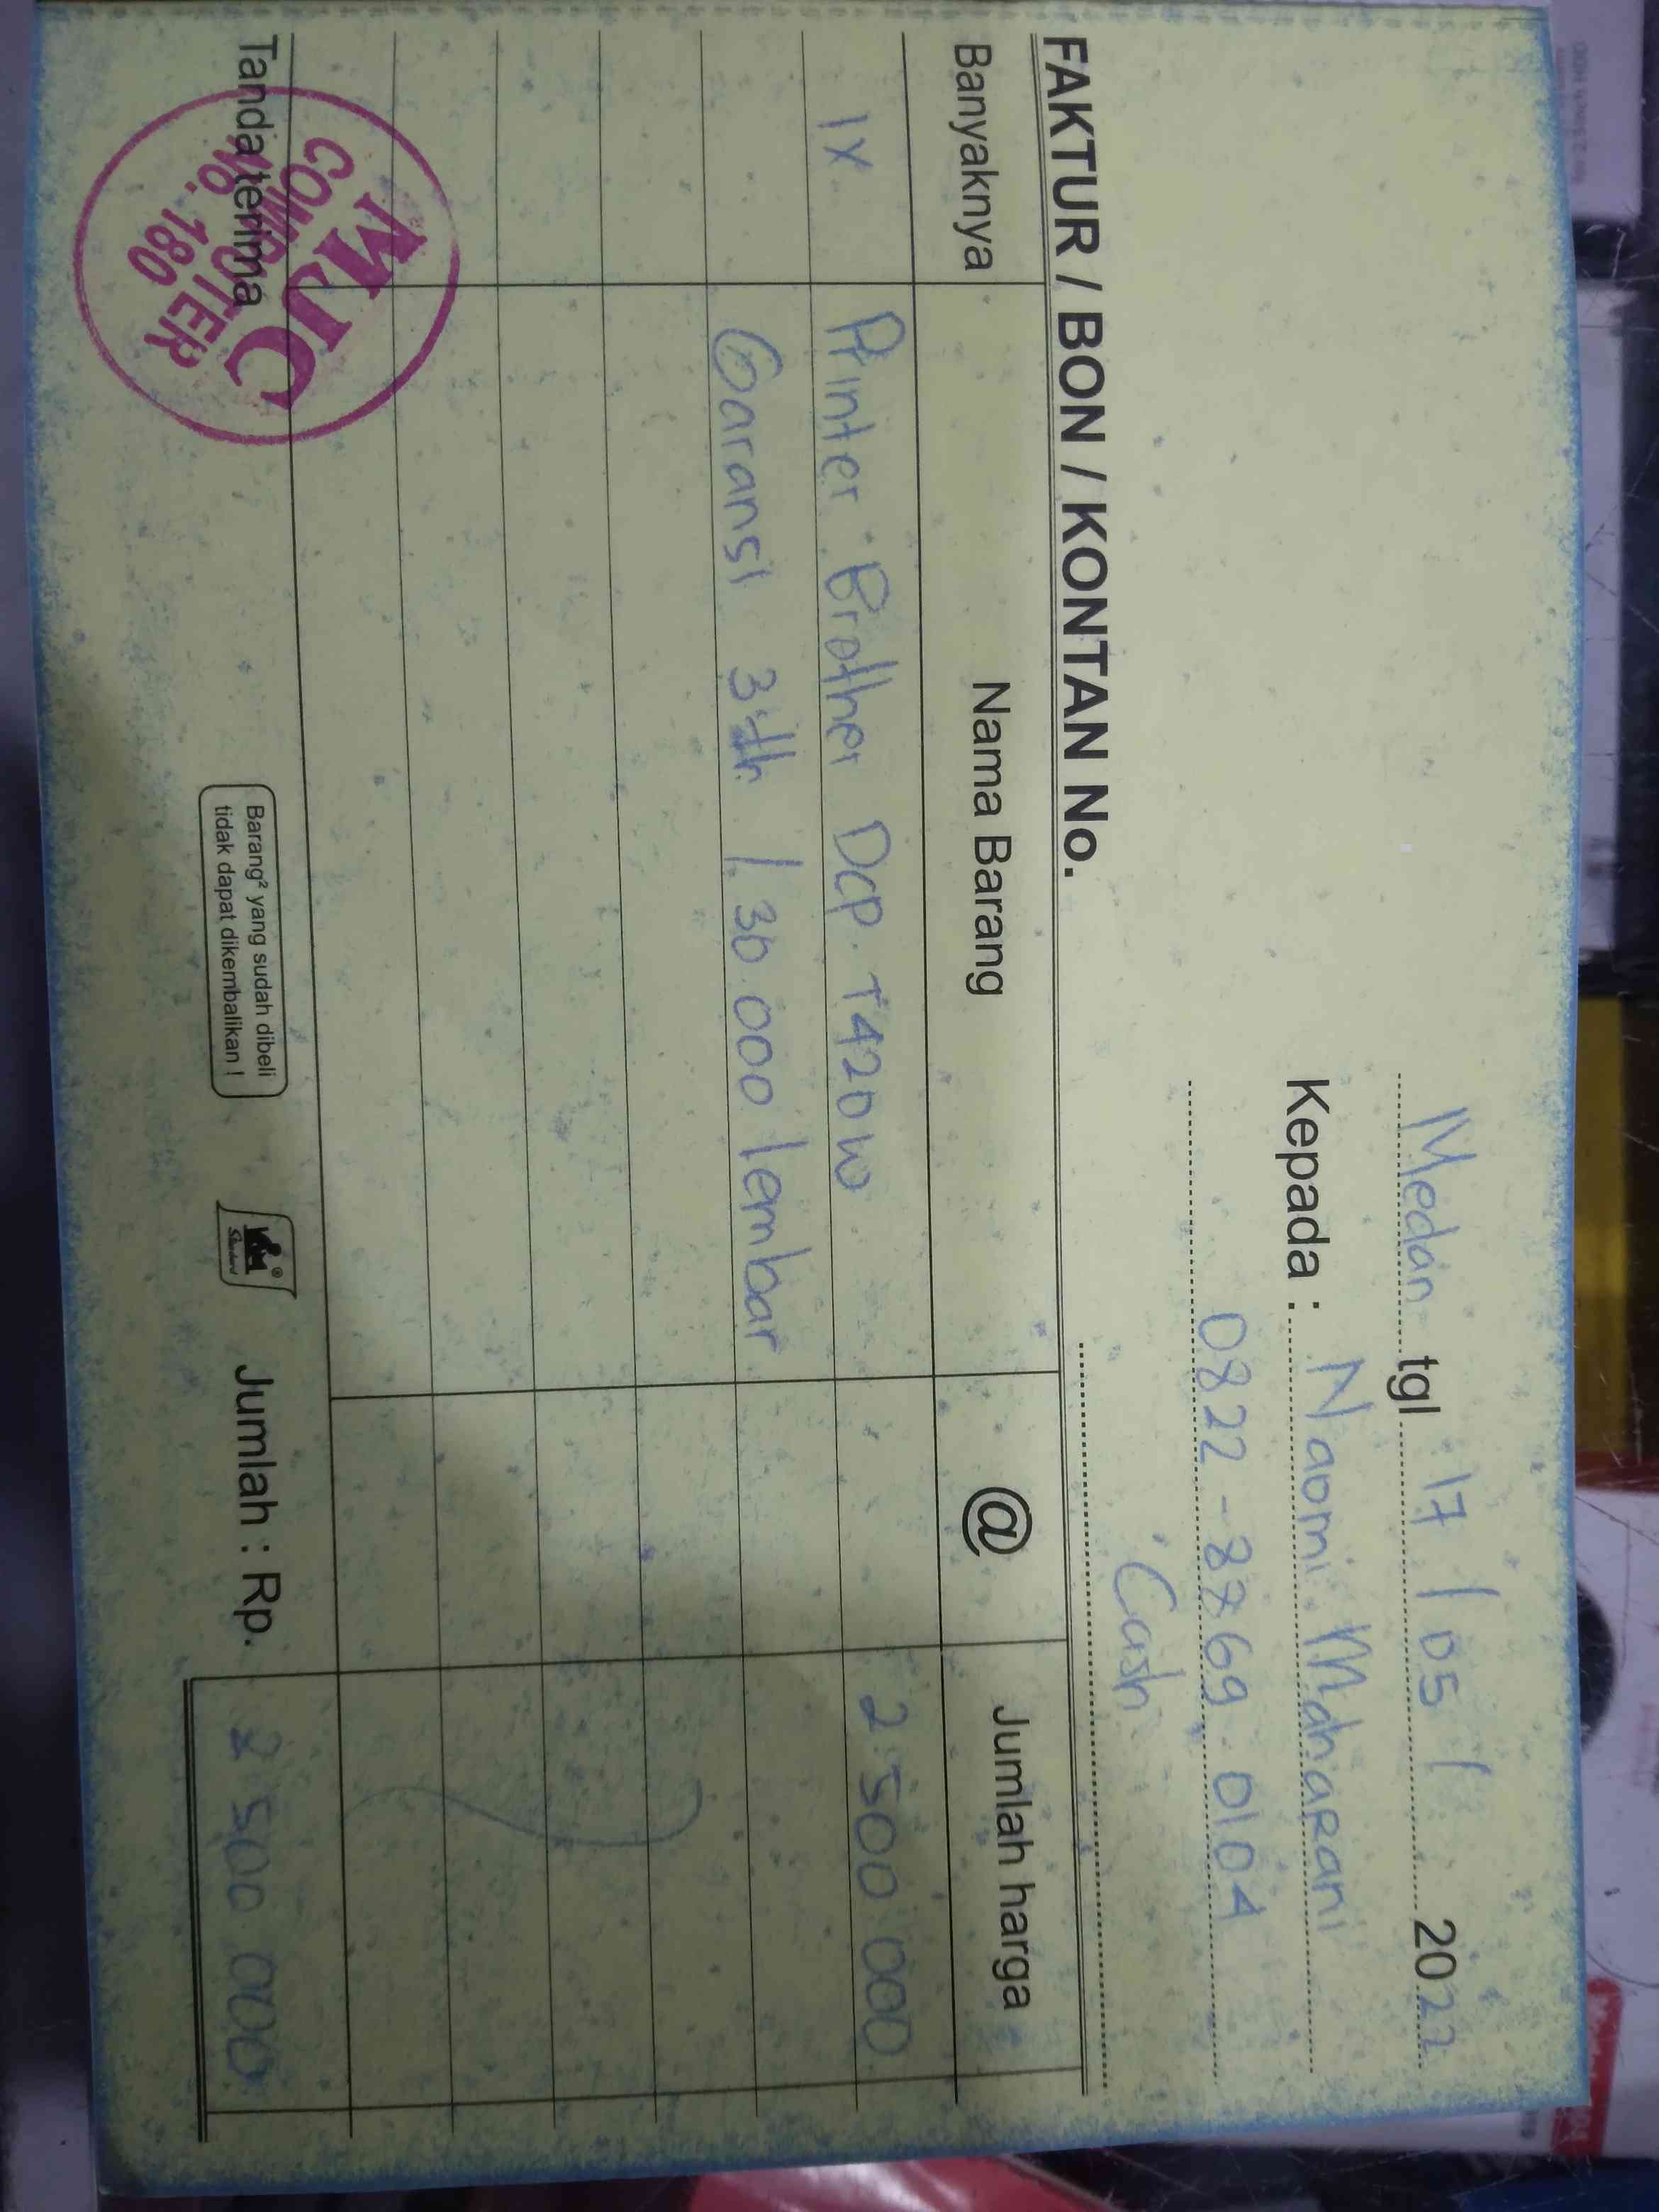 Medan tgl 17 / 05 / 2022
Kepada : Naomi Mahararani
0822 - 8769 - 0104
Cash
FAKTUR / BON / KONTAN No.
Banyaknya Nama Barang @ Jumlah harga
1x. Printer Brother Dcp. T420W 2.500.000
Garansi 3th / 30.000 lembar
Tanda terima
MJC
COMPUTER
NO. 180
Barang² yang sudah dibeli
tidak dapat dikembalikan !
Standard
Jumlah : Rp. 2 500 000